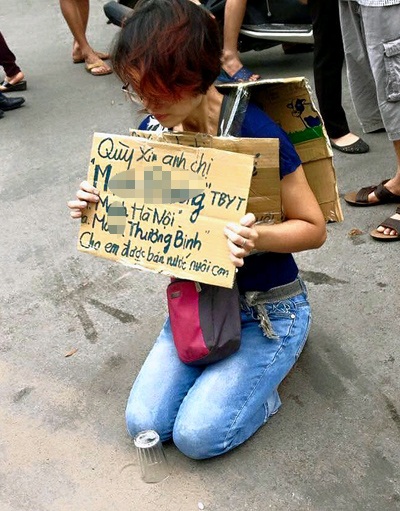 Quỳ Xin anh chị
"M "TBYT
Minh Hà Nội"
Thường Binh"
Cho em được bán nước nuôi con